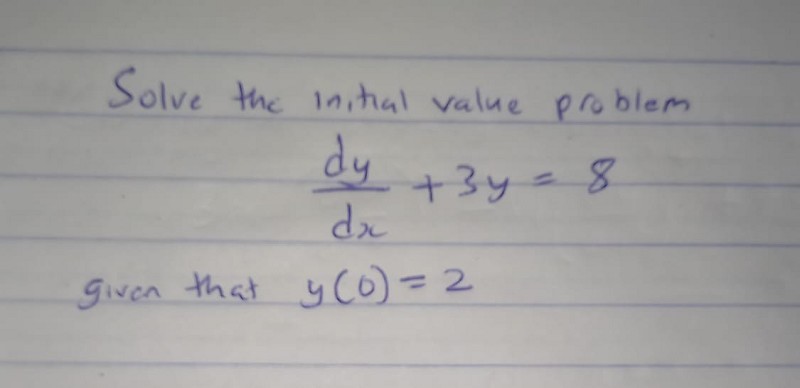 Solve the initial value problem
dy/dx + 3y = 8
given that y(0) = 2